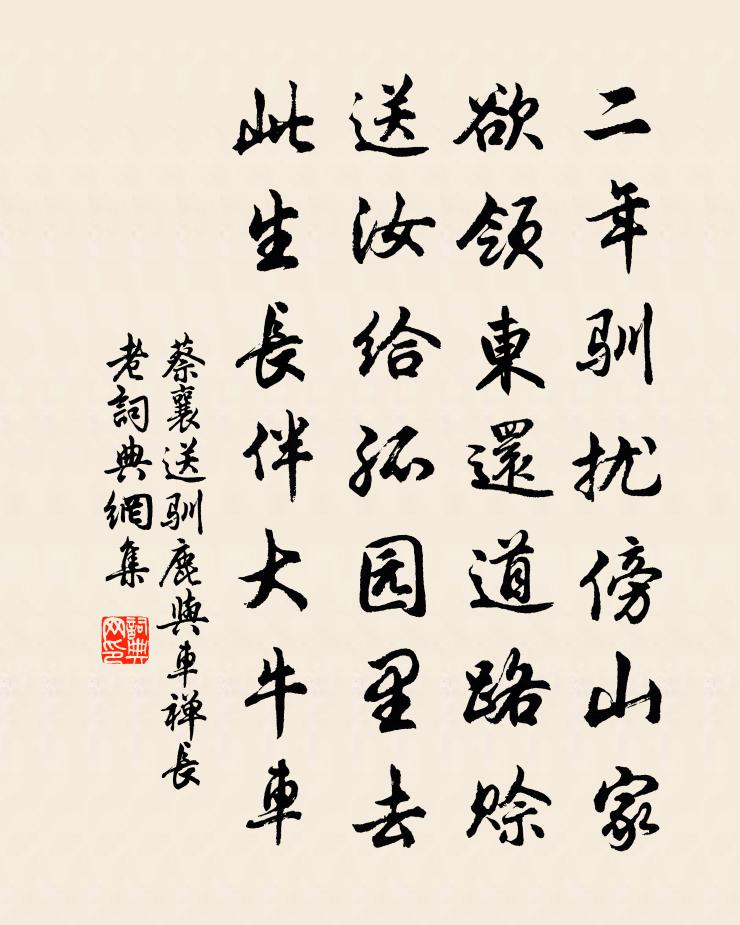 二年驯扰傍山家
欲领東還道路赊
送汝给孤园里去
此生長伴大牛車
蔡襄送驯鹿與車禅長
老詞典網集
詞典网印